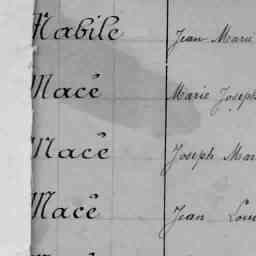 Mabile Jean Marie
Macé Marie Joseph
Macé Joseph Mar
Macé Jean Loui